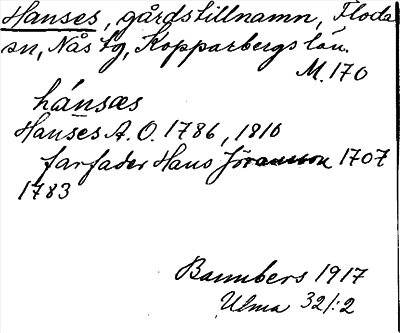 Hanses, gårdstillnamn, Floda
sn, Nås tg, Kopparbergs län.
M. 170
hánsæs
Hanses A. O. 1786, 1810
farfader Hans Jöransson 1707
1783
Bannbers 1917
Ulma 32/:2